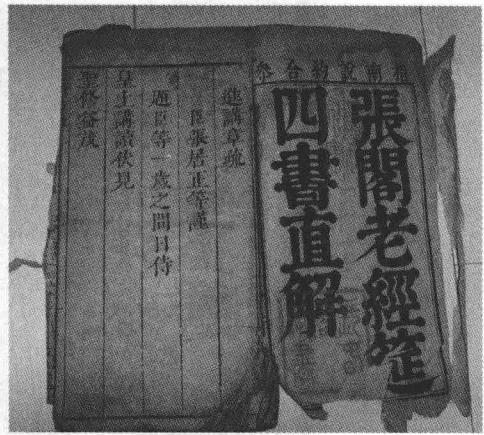 指南說約合叅
張閣老經筵
四書直解
進講章疏
臣張居正等謹
題臣等一歲之間日侍
皇上講讀伏見
聖修益茂